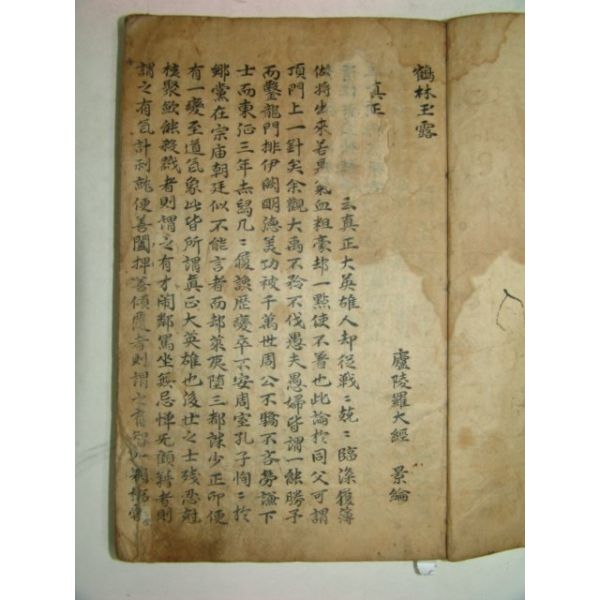 鶴林玉露
廬陵羅大經 景綸
真正
云真正大英雄人却從戰〻兢〻臨深履薄
做將出來若是氣血粗豪却一點使不着也此論於同父可謂
頂門上一針矣余觀大禹不矜不伐愚夫愚婦皆謂一能勝予
而鑿龍門排伊闕明德美功被千萬世周公不驕不吝勞謙下
士而東征三年赤舃几〻履謨歷變卒不安周室孔子恂〻於
鄉黨在宗庙朝廷似不能言者而却萊夷隨三都誅少正卯便
有一變至道氣象此皆所謂真正大英雄也後世之士殘忍尅
核聚歛蝕殺戮者則謂之有才閙鄰罵坐無忌憚无顧藉者則
謂之有氣計利就便善闔捭善傾覆者則謂之有智